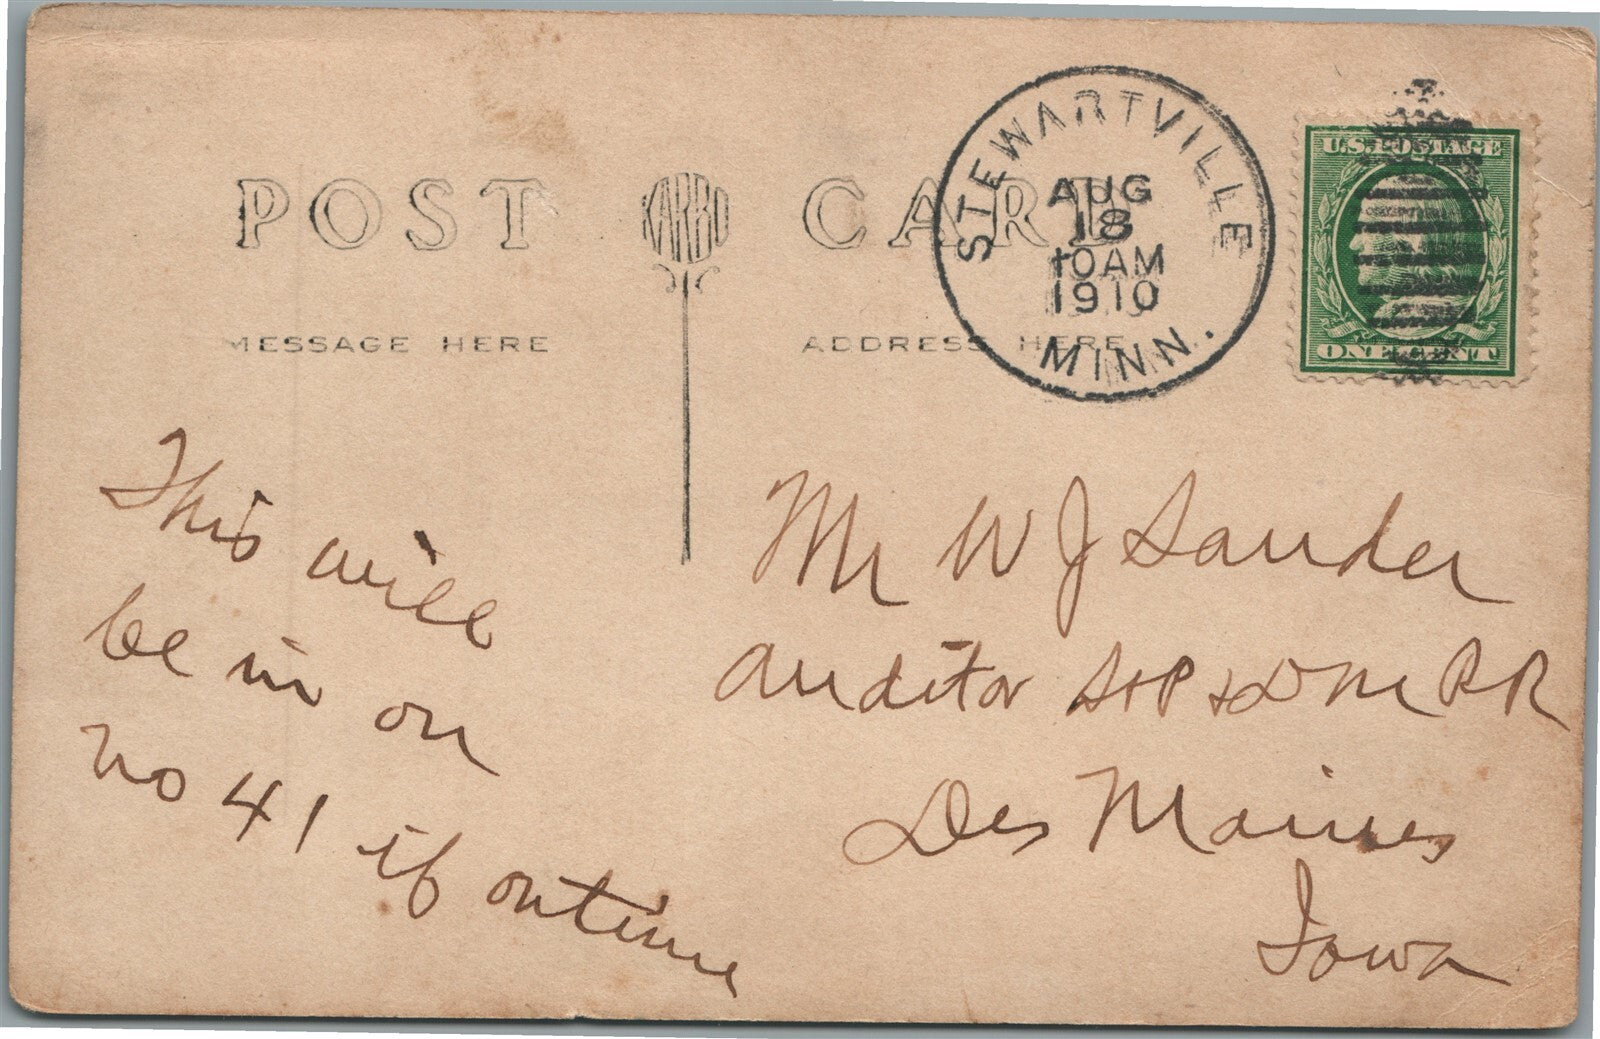 POST KARBO CARD
MESSAGE HERE
ADDRESS HERE
STEWARTVILLE
AUG
18
10AM
1910
MINN.
U.S.POSTAGE
ONE CENT
This will
be in on
No 41 if ontime
Mr W J Sauder
Auditor StP & DM RR
Des Moines
Iowa